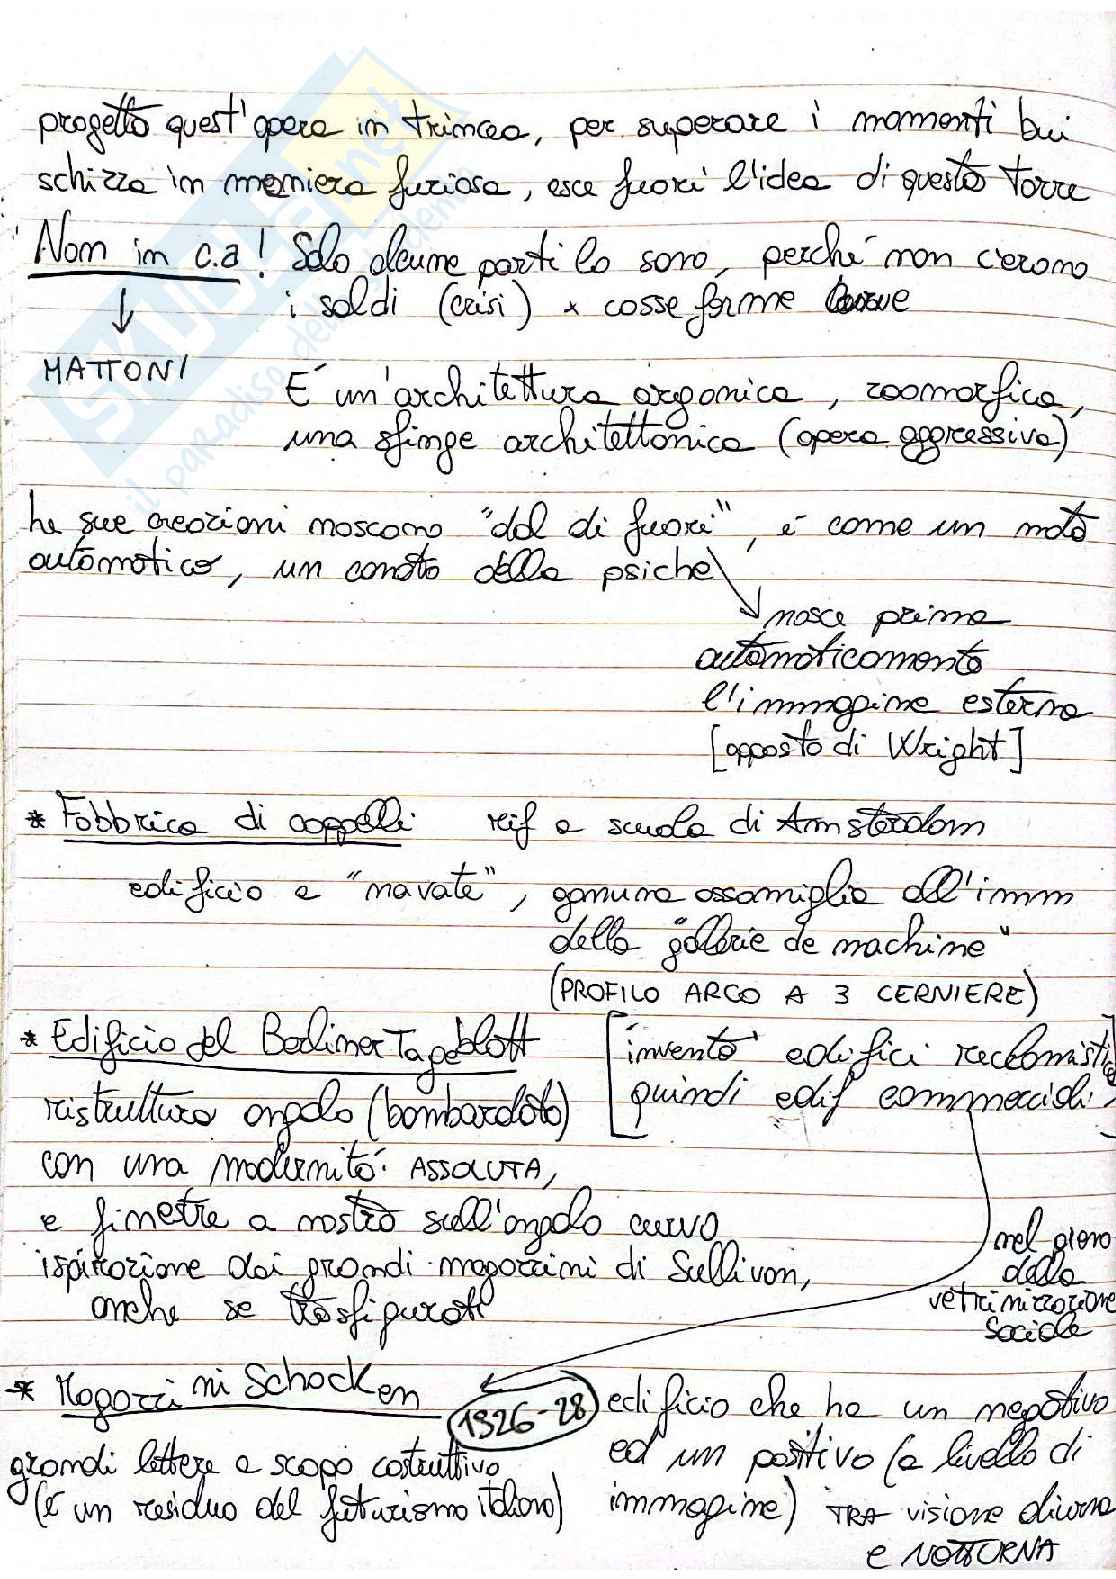 progetto quest'opera in trincea, per superare i momenti bui
schizza in maniera furiosa, esce fuori l'idea di questa torre
Non in c.a! Solo alcune parti lo sono, perché non c'erano
i soldi (crisi) x cosse forme curve
MATTONI
È un'architettura organica, zoomorfica,
una sfinge architettonica (opera aggressiva)
Le sue creazioni nascono "dal di fuori", è come un moto
automatico, un conato della psiche
nasce prima
automaticamente
l'immagine esterna
[opposto di Wright]
* Fabbrica di cappelli rif a scuola di Amsterdam
edificio a "navate", ognuna assomiglia all'imm
della "gallerie de machine"
(PROFILO ARCO A 3 CERNIERE)
* Edificio del Berliner Tageblatt
[inventò edifici reclamistici
quindi edif commerciali]
ristruttura angolo (bombardato)
con una modernità ASSOLUTA,
e finestre a nastro sull'angolo curvo
ispirazione dai grandi magazzini di Sullivan,
anche se trasfigurati
nel giero
della
vetrinizzazione
sociale
* Magazzini Schocken 1926-28
edificio che ha un negativo
ed un positivo (a livello di
immagine) TRA visione diurna
e NOTTURNA
grandi lettere a scopo costruttivo
(è un residuo del futurismo italiano)
SKUOLA.net
il paradiso dello studente